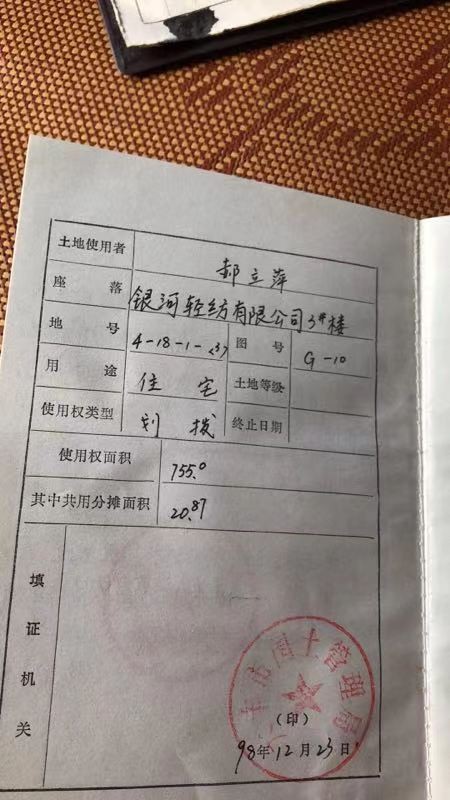 土地使用者 郝立萍
座落 银河轻纺有限公司3#楼
地号 4-18-1-237 图号 G-10
用途 住宅 土地等级
使用权类型 划拨 终止日期
使用权面积 755.0
其中共用分摊面积 20.87
填证机关
国土管理局
（印）
98年12月23日